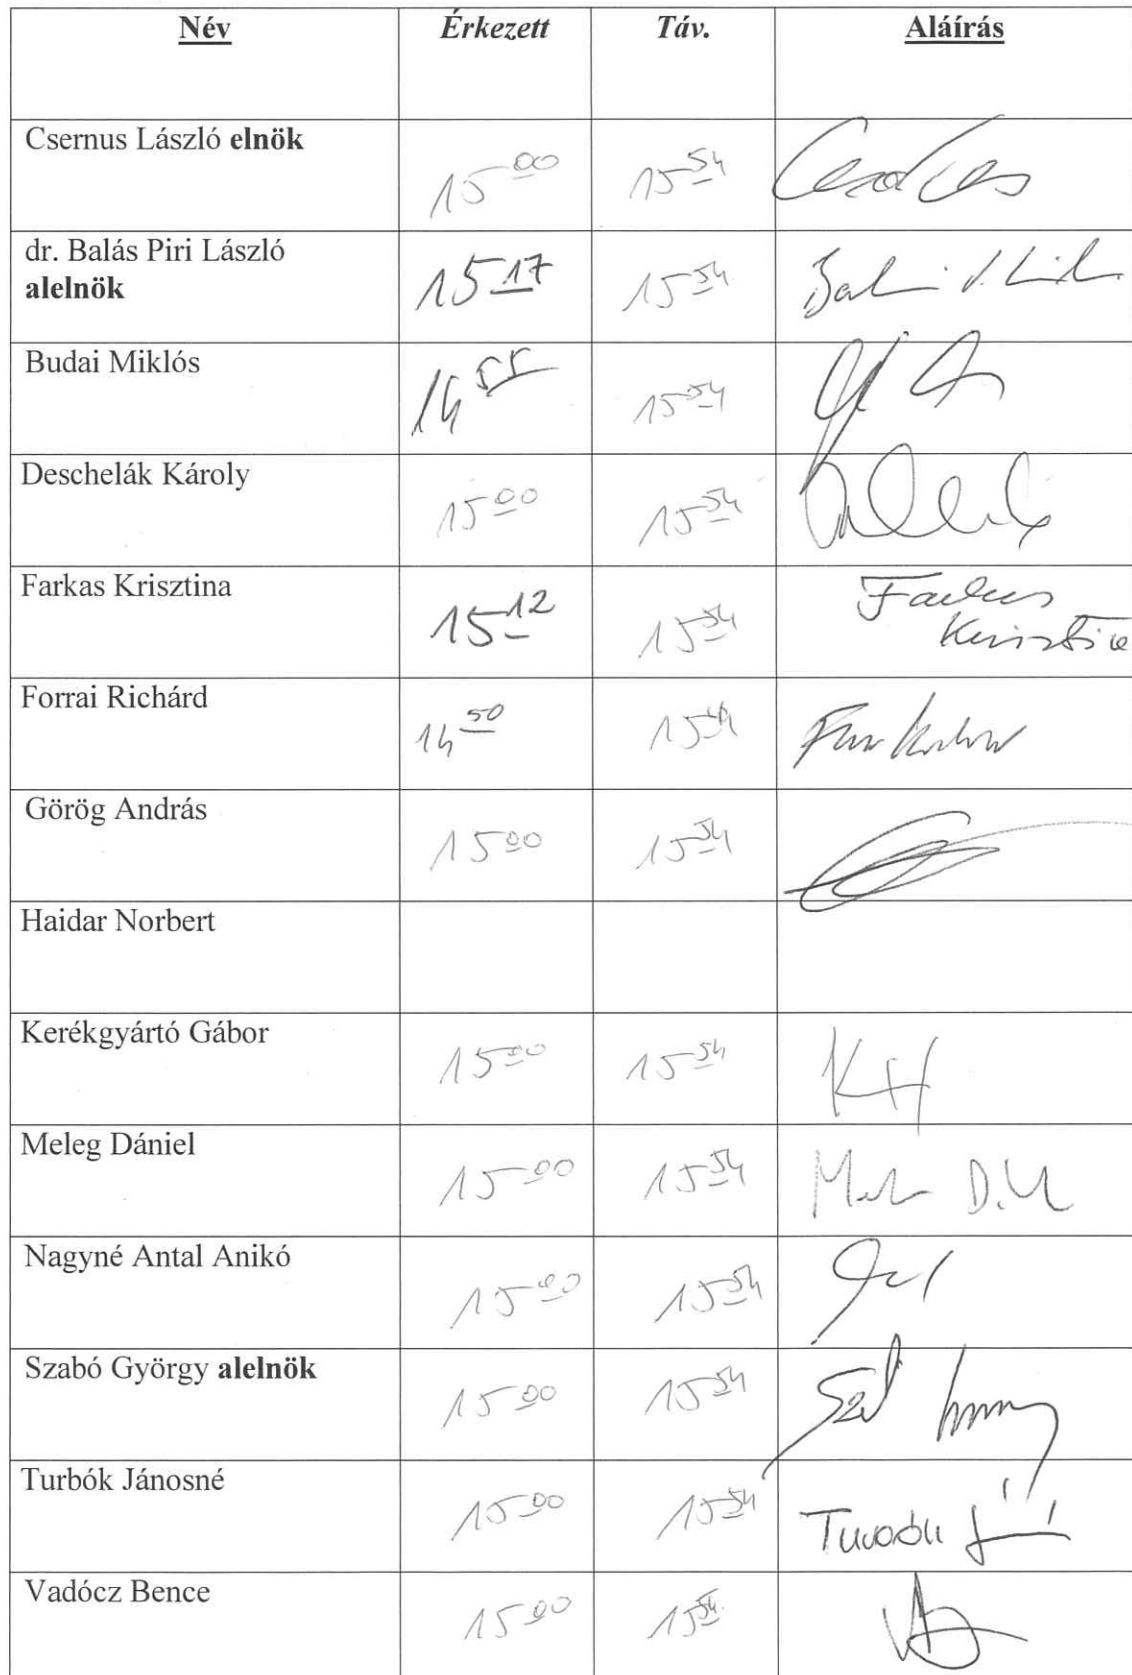 Név Érkezett Táv. Aláírás
Csernus László elnök 15 00 15 54
dr. Balás Piri László
alelnök 15 17 15 54
Budai Miklós 14 55 15 54
Deschelák Károly 15 00 15 54
Farkas Krisztina 15 12 15 54 Farkas
Krisztina
Forrai Richárd 14 50 15 54
Görög András 15 00 15 54
Haidar Norbert
Kerékgyártó Gábor 15 00 15 54
Meleg Dániel 15 00 15 54
Nagyné Antal Anikó 15 00 15 54
Szabó György alelnök 15 00 15 54
Turbók Jánosné 15 00 15 54
Vadócz Bence 15 00 15 54